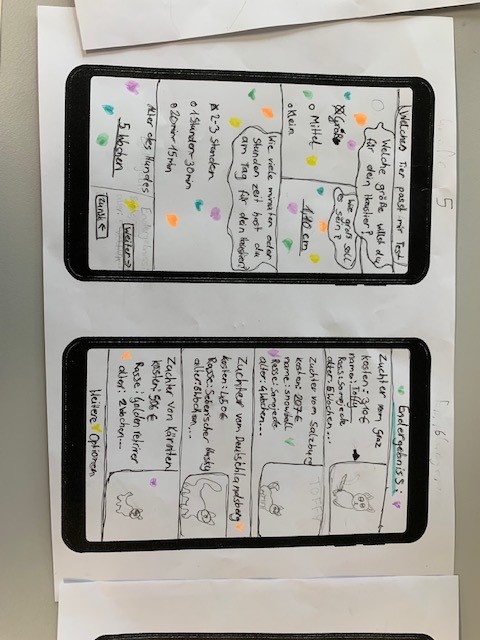 Welches Tier passt mir Test
Welche größe willst du
für dein Haustier?
Große
Mittel
Klein
Wie groß soll
es sein?
1,10 cm
Wie viele minaten oder
stunden zeit hast du
am Tag für dein Haustier?
2-3 stunden
1 Stunden-30 min
20 min-15 min
Alter des Hundes
5 Wochen
Weiter→
Zurük←
5
Endergebniss:
Züchter vom Graz
kosten: 310€
namen: Toffy
Rass: Samojede
alter: 5 Wochen...
Züchter vom Salzburg
kosten: 207€
name: snowball
Rasse: Samojede
alter: 4 Wochen...
Züchter vom Deutschlandsberg
kosten: 460€
Rasse: Siberischer Husky
alter: 8 Wochen...
Züchter von Kärnten
kosten: 506€
Rasse: Golden retriver
alter: 2 Wochen...
Weitere Optionen